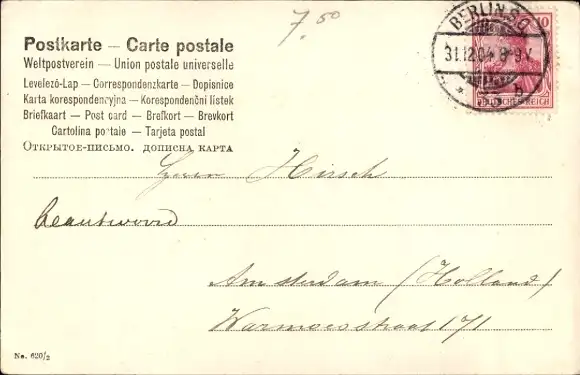 7.50
Postkarte — Carte postale
Weltpostverein — Union postale universelle
Levelező-Lap — Correspondenzkarte — Dopisnice
Karta korespondencyjna — Korespondenční lístek
Briefkaart — Post card — Brefkort — Brevkort
Cartolina postale — Tarjeta postal
Открытое-письмо. дописна карта
BERLIN SO
31.12.04. 8-9V.
b
10
DEUTSCHES REICH
Herrn Hirsch
beantwoord
Amsterdam (Holland)
Warmoesstraat 171
No. 620/2